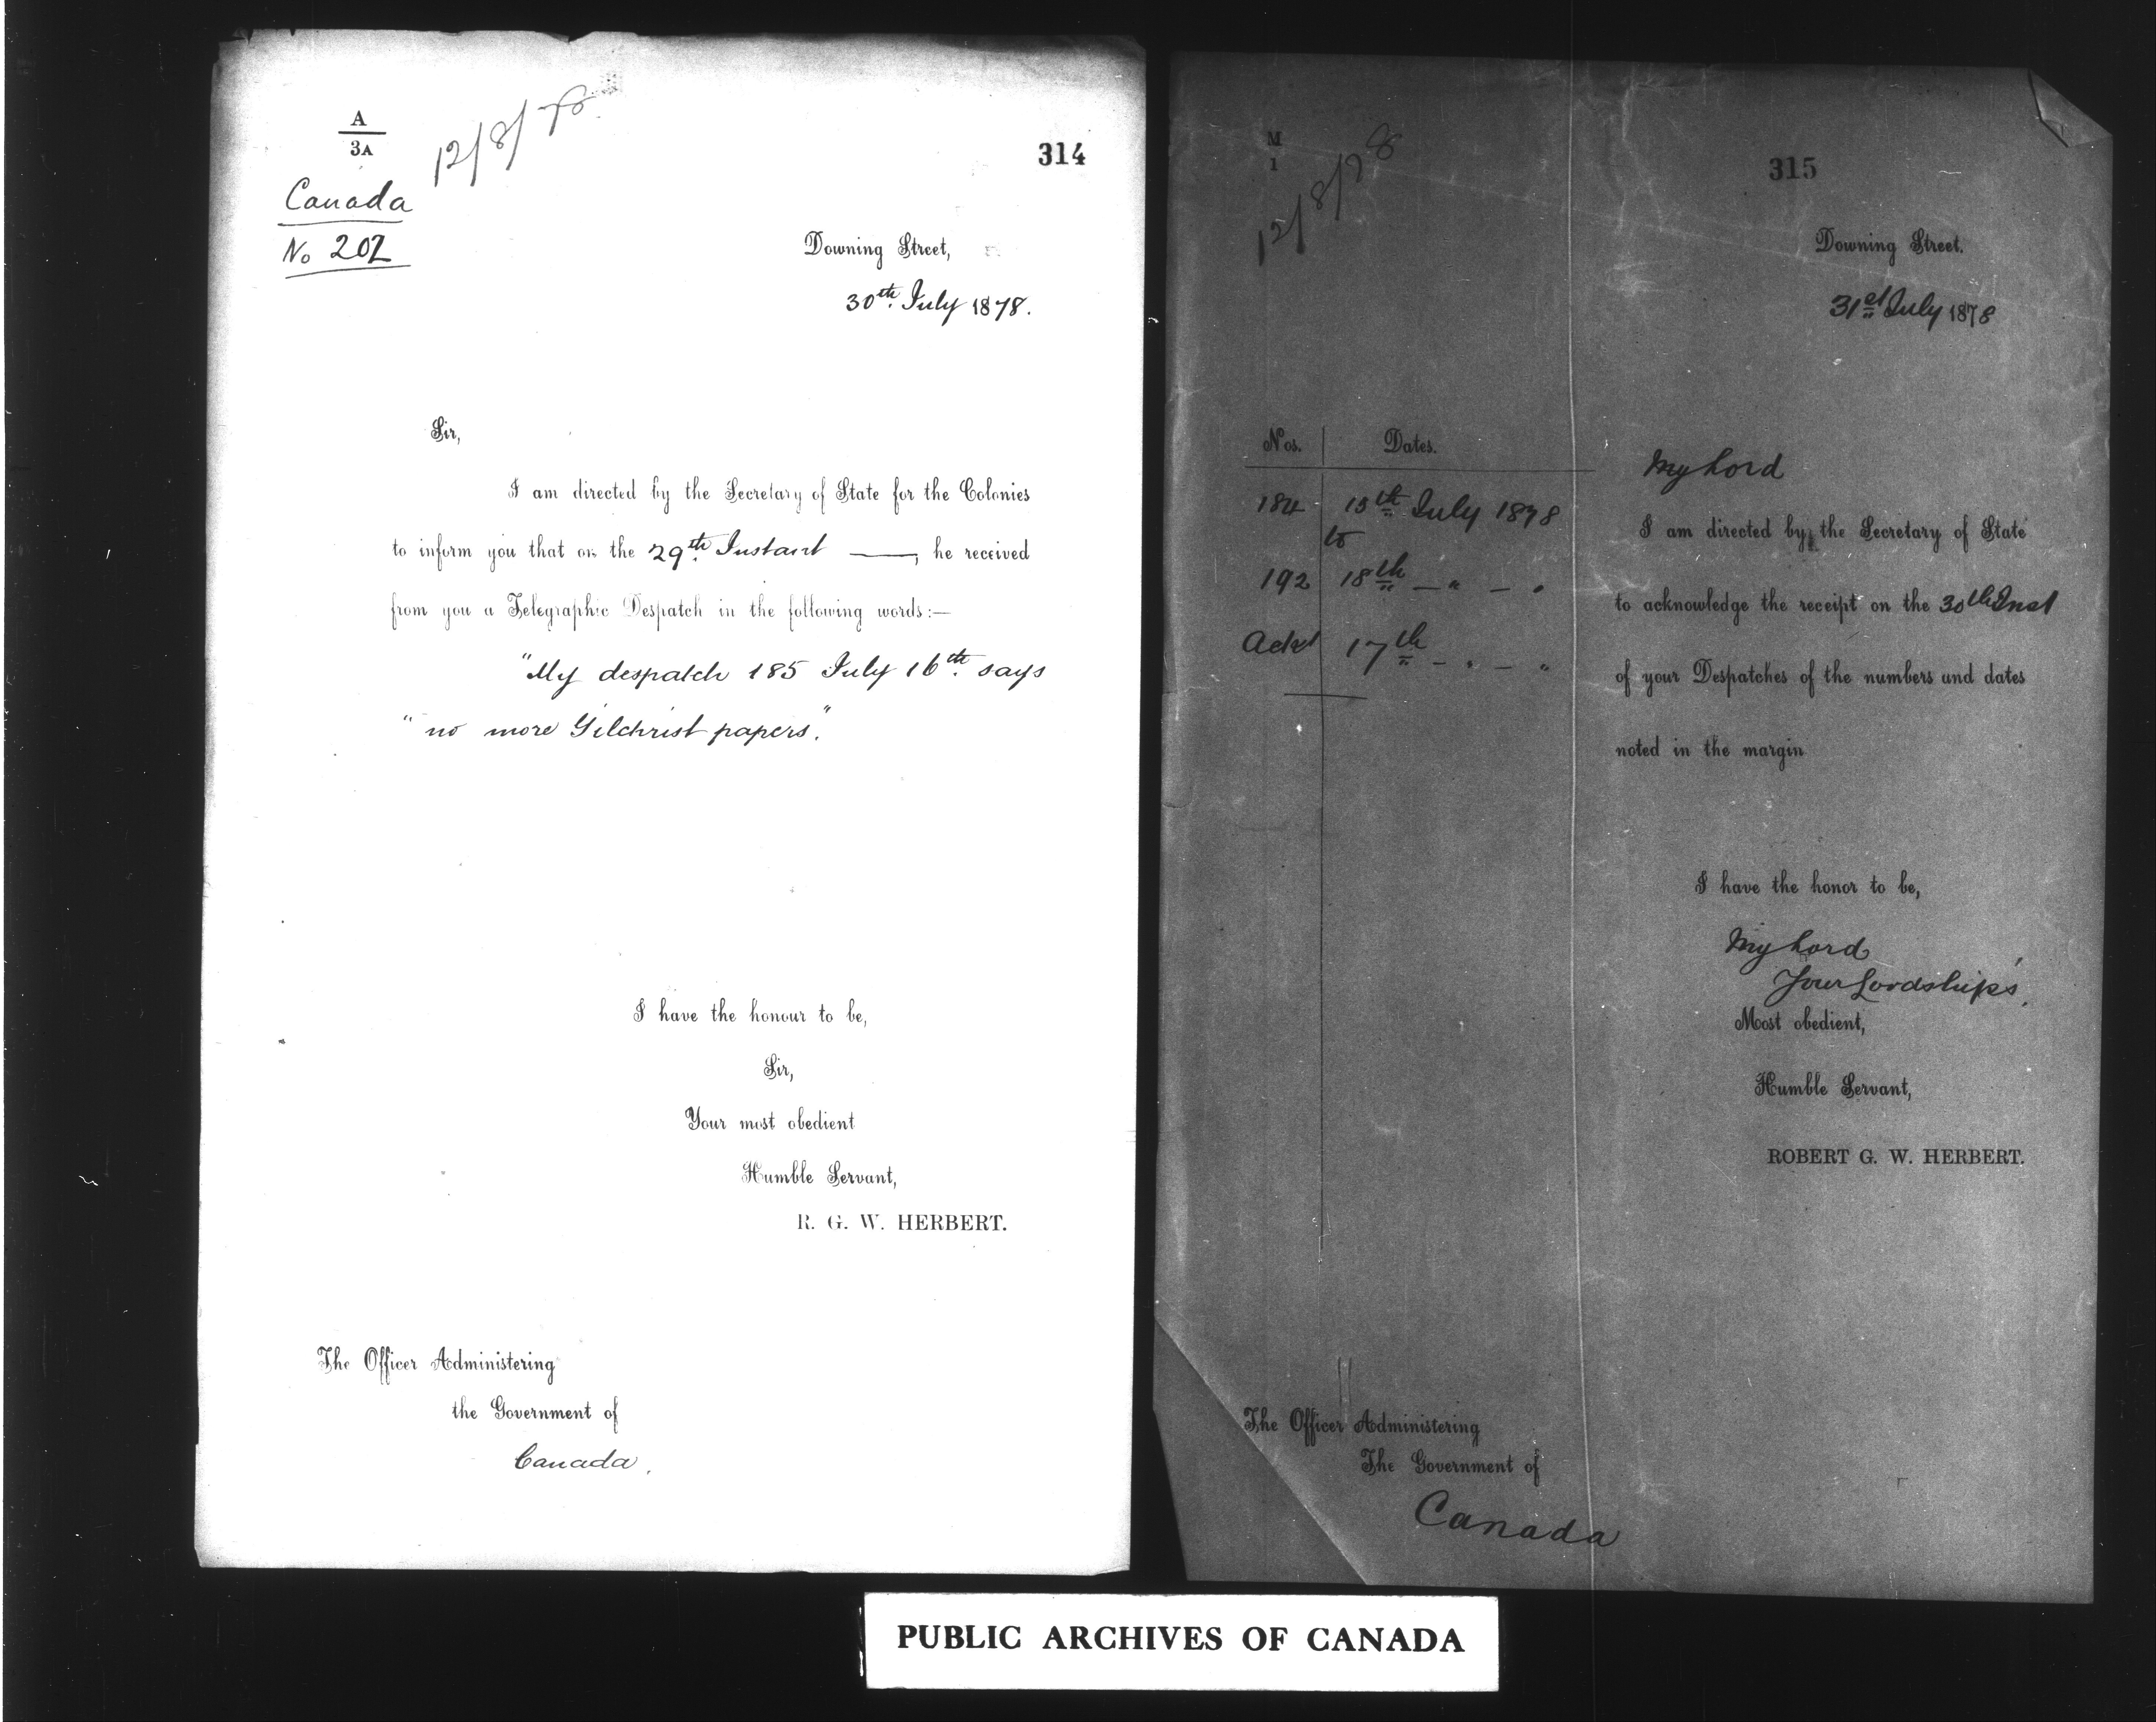 A
3A
12/8/78
314
Canada
No 202
Downing Street,
30th. July 1878.
Sir,
I am directed by the Secretary of State for the Colonies
to inform you that on the 29th. Instant ——, he received
from you a Telegraphic Despatch in the following words:—
"My despatch 185 July 16th. says
" no more Gilchrist papers."
I have the honour to be,
Sir,
Your most obedient
Humble Servant,
R. G. W. HERBERT.
The Officer Administering
the Government of
Canada.
M
1
12/8/78
315
Downing Street.
31st July 1878
Nos. Dates.
184 15th July 1878
to
192 18th — " — "
Ackt 17th — " — "
My Lord
I am directed by the Secretary of State
to acknowledge the receipt on the 30th Inst
of your Despatches of the numbers and dates
noted in the margin
I have the honor to be,
My Lord
Your Lordship's,
Most obedient,
Humble Servant,
ROBERT G. W. HERBERT.
The Officer Administering
The Government of
Canada
PUBLIC ARCHIVES OF CANADA